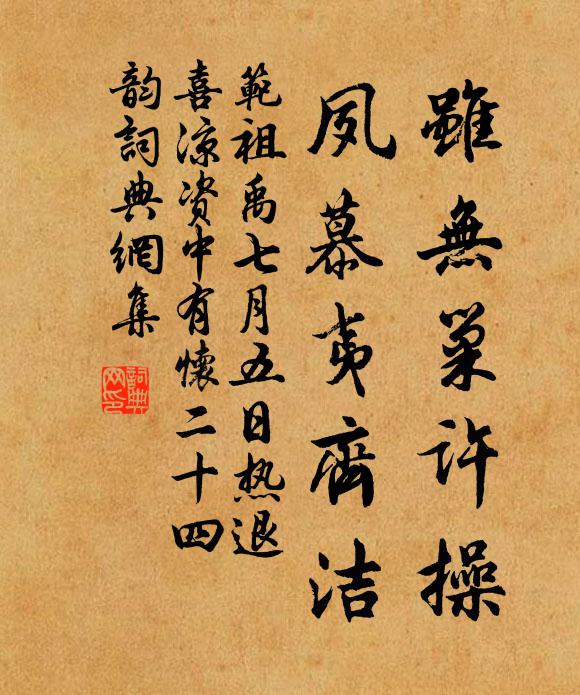 雖無巢许操
夙慕夷齊洁
範祖禹七月五日热退
喜凉资中有懷二十四
韵詞典網集
詞典网印